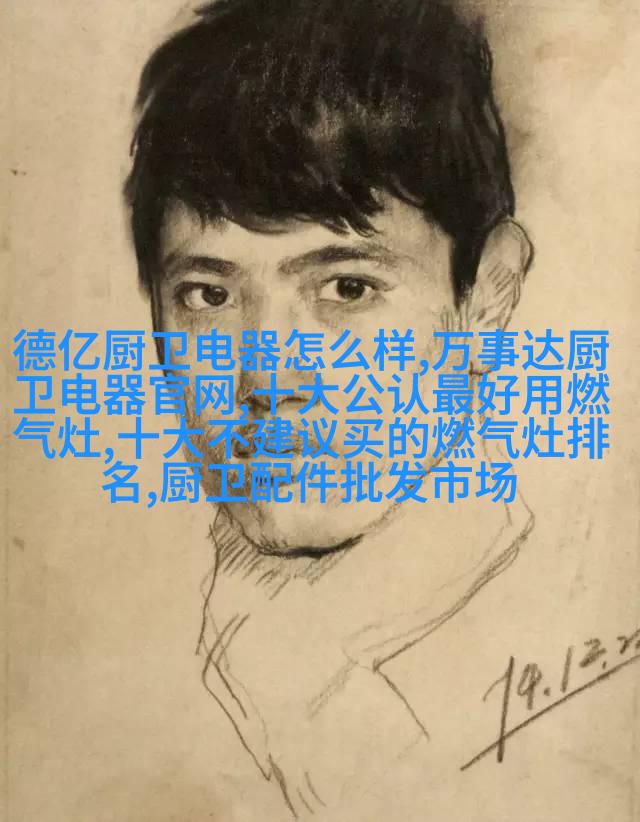 德亿厨卫电器怎么样,万事达厨
卫电器官网,十大公认最好用燃
气灶,十大不建议买的燃气灶排
名,厨卫配件批发市场